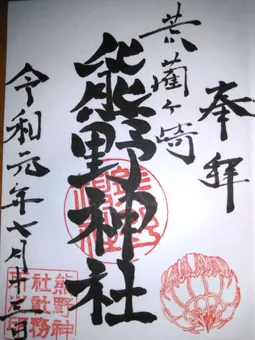 奉拝
藺ヶ崎
熊野神社
令和元年七月十三日
熊野神
社社務